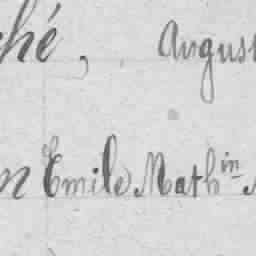 ché, August
n Emile Math^in